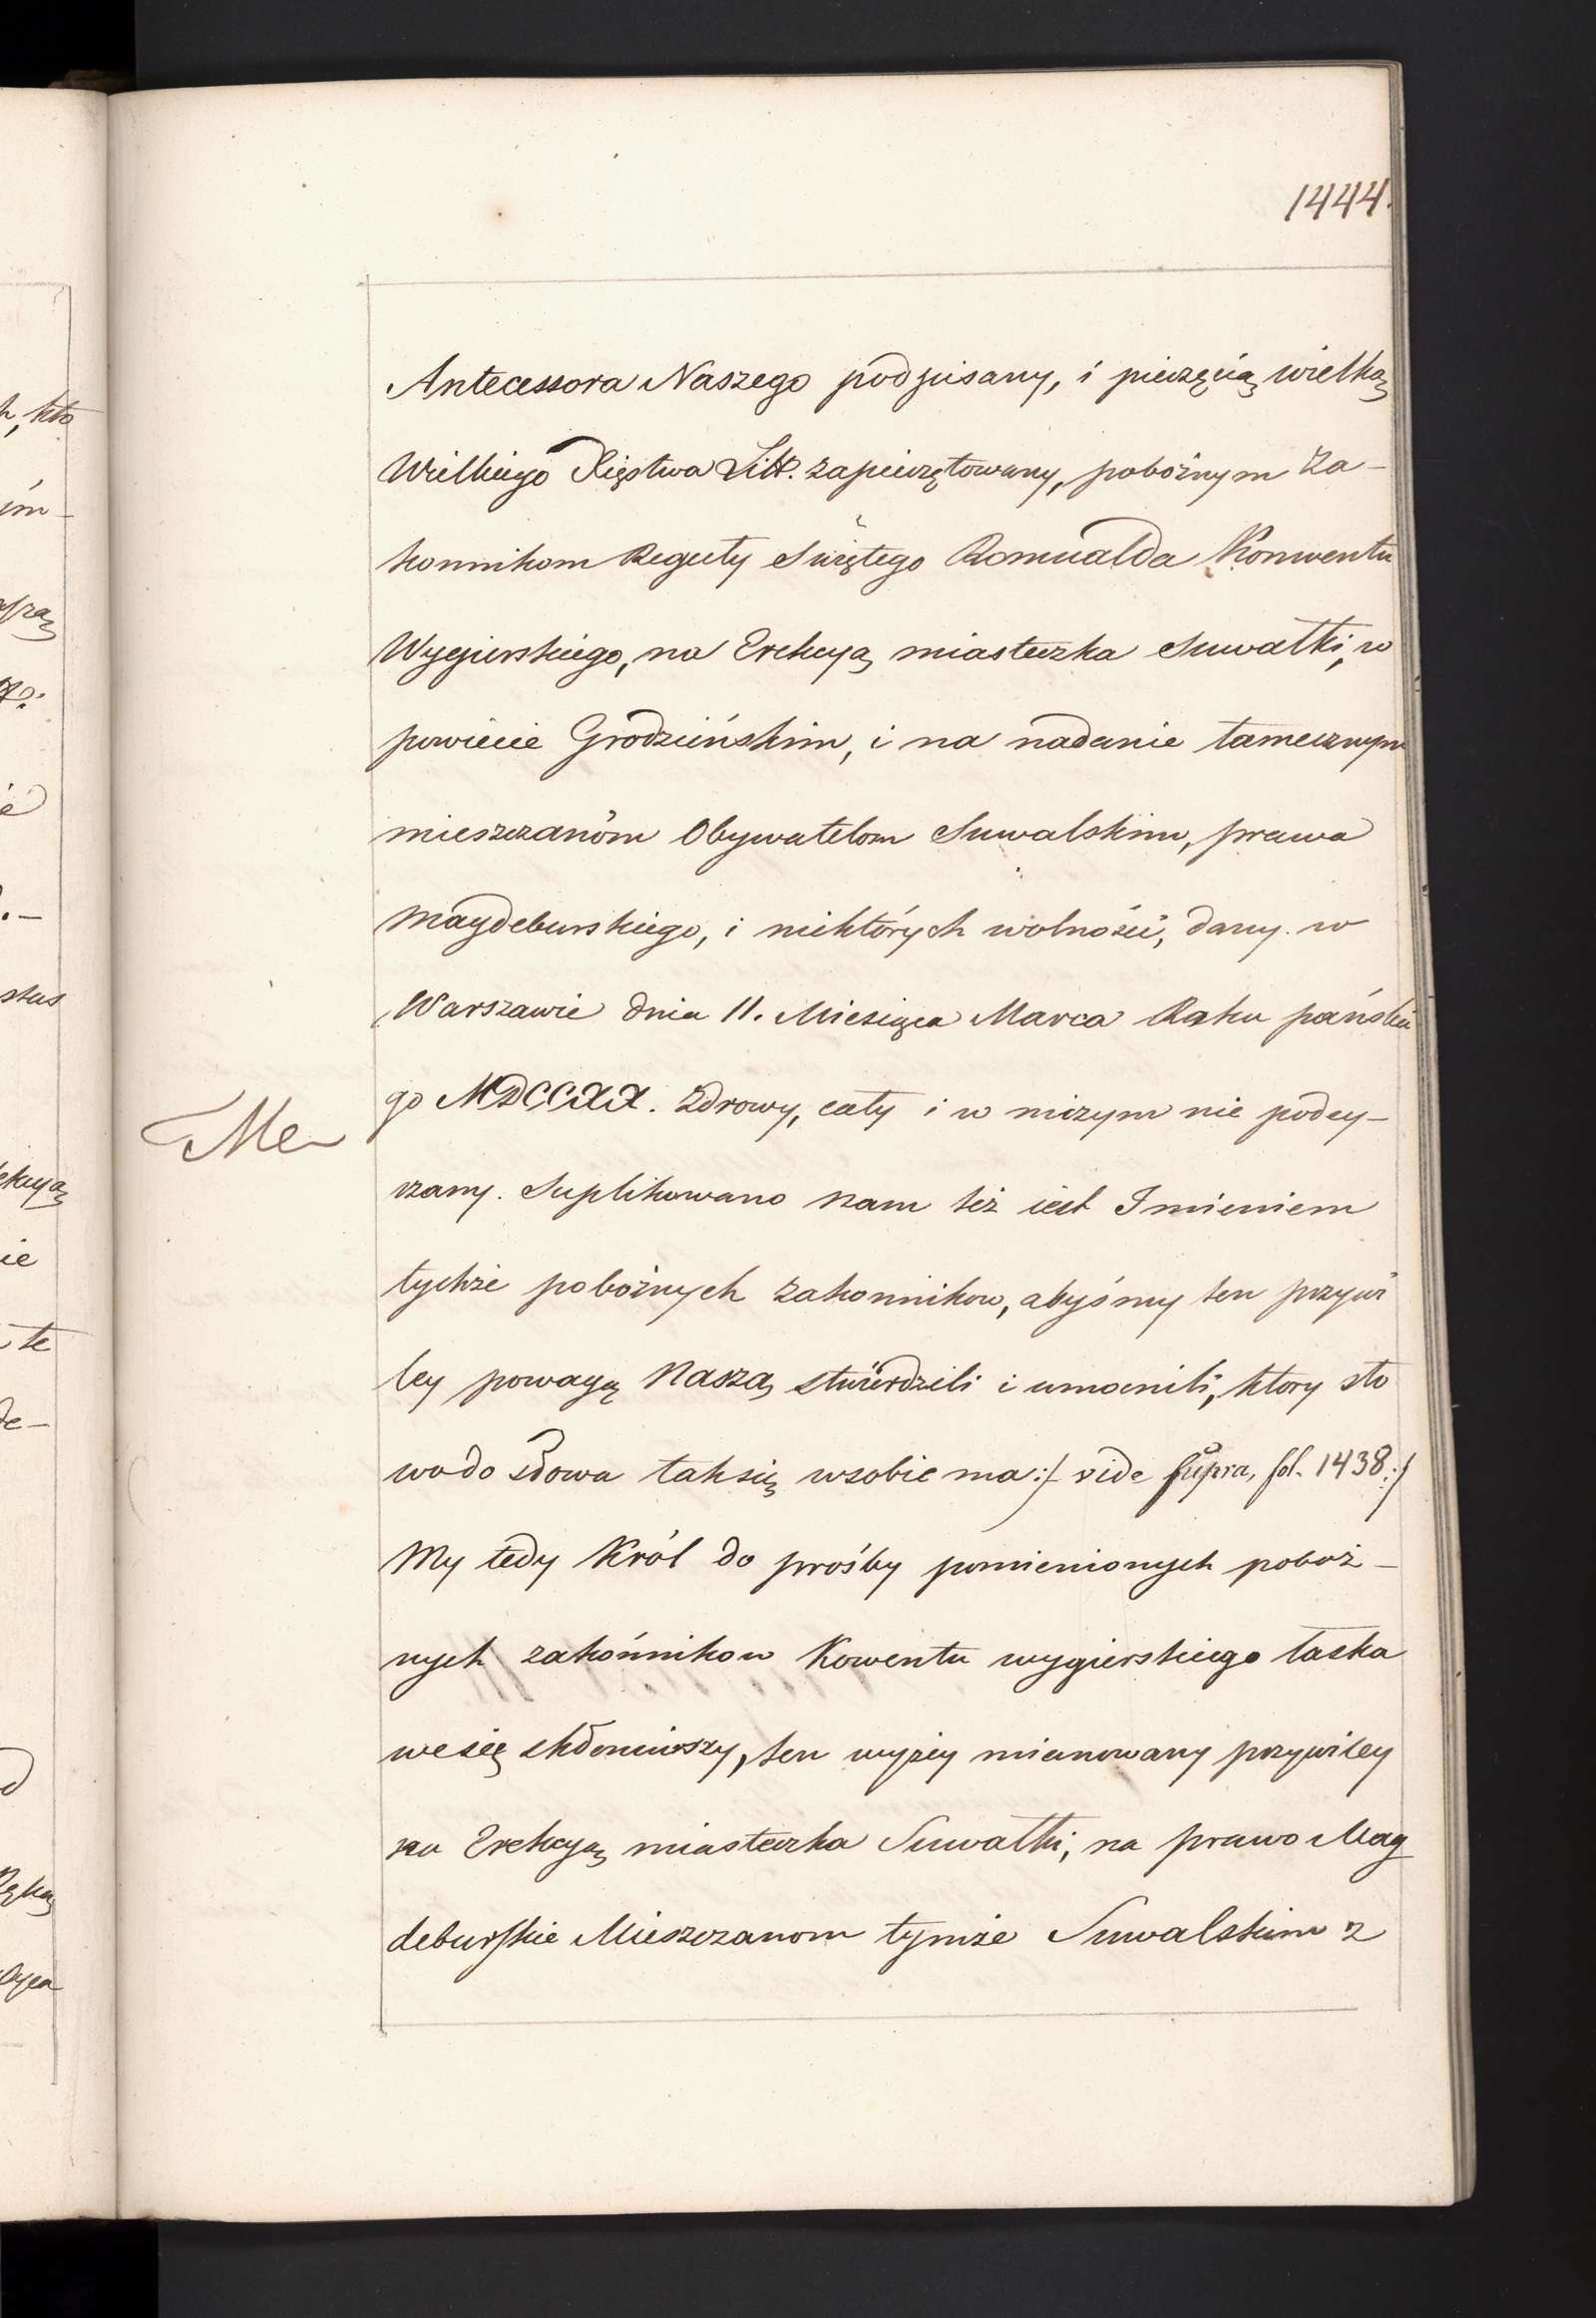 1444.
Antecessora Naszego podpisany, i pieczęcią wielką
Wielkiego Xięstwa Litt. zapieczętowany, pobożnym Za-
konnikom Reguły Swiętego Romualda Konwentu
Wygierskiego, na Erekcyą miasteczka Suwałki, w
powiecie Grodzieńskim, i na nadanie tamecznym
mieszczanóm Obywatelom Suwalskim, prawa
Maydeburskiego, i niektórych wolności, dany w
Warszawie dnia 11. Miesiąca Marca Roku pański
go MDCCXX. Zdrowy, cały i w niczym nie podey-
rzany. Suplikowano Nam też iest Imieniem
tychże pobożnych Zakonnikow, abyśmy ten przywi
ley powagą Naszą stwierdzili i umocnili, ktory sło
wo do słowa tak się wsobie ma :/ vide supra, fol. 1438 :/
My tedy Król do prośby pomienionych poboż-
nych zakónnikow Kowentu wygierskiego łaska
we się skłoniwszy, ten wyżey mianowany przywiley
na Erekcyą miasteczka Suwałki, na prawo Mag
deburskie Mieszczanom tymże Suwalskim z